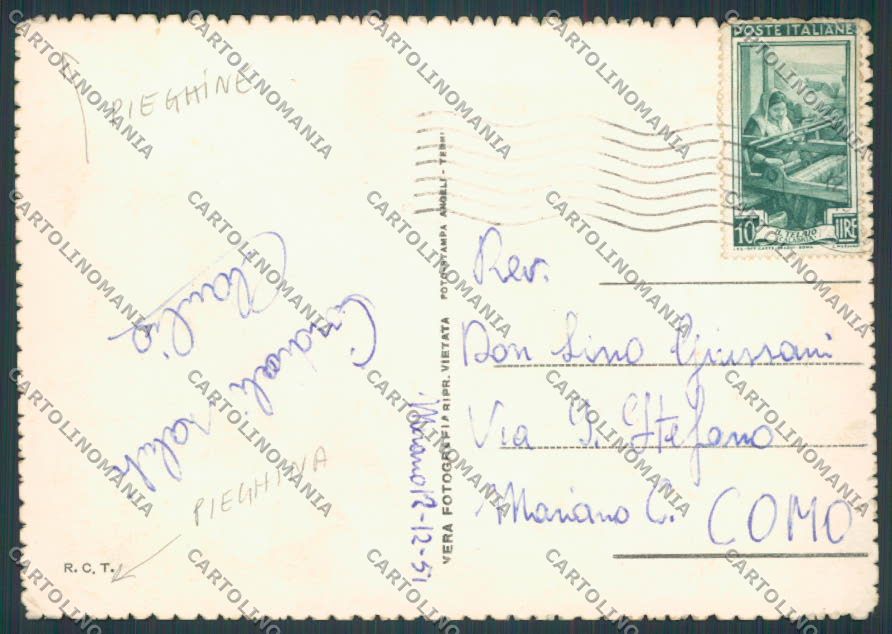 PIEGHINE
Cordiali saluti
Claudio
PIEGHINA
R. C. T.
VERA FOTOGRAFIA RIPR. VIETATA FOTOSTAMPA ANGELI - TERNI
12-12-51
POSTE ITALIANE
10 LIRE
IL TELAIO
CALABRIA
Rev.
Don Lino Giussani
Via S. Stefano
Mariano C. COMO
CARTOLINOMANIA